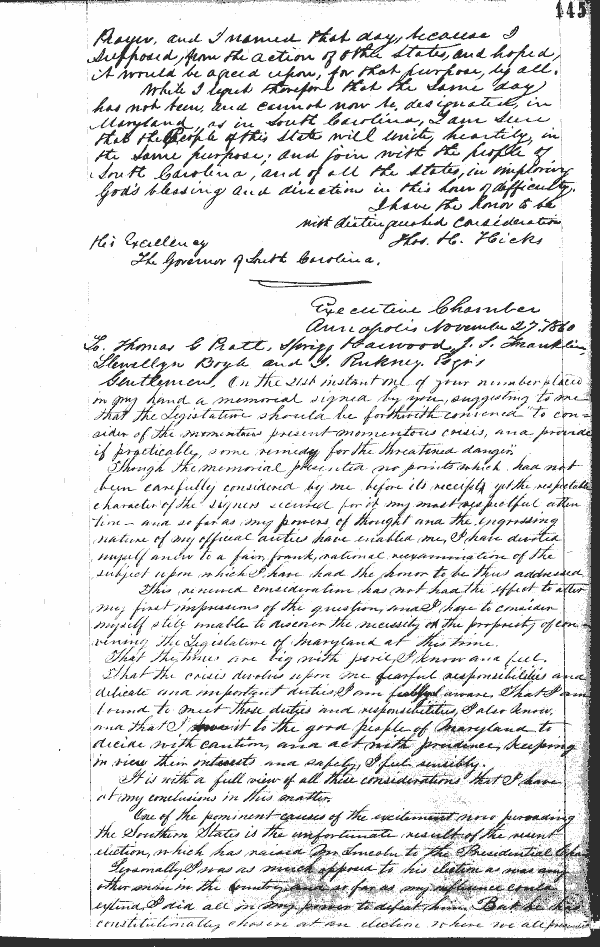 145
Prayer, and I named that day, because I
supposed, from the action of other States, and hoped,
it would be agreed upon, for that purpose, by all.
While I regret therefore that the same day
has not been, and cannot now be, designated, in
Maryland, as in South Carolina, I am sure
that the People of this State will unite, heartily, in
the same purpose; and join with the people of
South Carolina, and of all the States, in imploring
God's blessing and direction in this hour of difficulty.
I have the honor to be
with distinguished consideration
His Excellency Thos. H. Hicks
The Governor of South Carolina.
Executive Chamber
Annapolis November 27, 1860
To Thomas G Pratt, Sprigg Harwood, J. S. Franklin,
Llewellyn Boyle and J. Pinkney Esqrs
Gentlemen, On the 21st instant one of your number placed
in my hand a memorial signed by you, suggesting to me
that the Legislature should be forthwith convened "to con-
sider of the momentous present momentous crisis, and provide
if practicably, some remedy for the threatened danger".
Though the memorial presented no points which had not
been carefully considered by me before its receipt, yet the respectable
character of the signers secured for it my most respectful atten
tion - and so far as my powers of thought and the engrossing
nature of my official duties have enabled me, I have devoted
myself anew to a fair, frank, national reexamination of the
subject upon which I have had the honor to be thus addressed
This renewed consideration has not had the effect to alter
my first impressions of the question, and I have to consider
myself still unable to discover the necessity or the propriety of con-
vening the Legislature of Maryland at this time.
That the times are big with peril, I know and feel.
That the crisis devolves upon me fearful responsibilities and
delicate and important duties I am aware. That I am
bound to meet these duties and responsibilities, I also know,
and that I it to the good people of Maryland to
decide with caution, and act with prudence, keeping
in view their interests and safety, I feel sensibly.
It is with a full view of all these considerations that I have
at my conclusions in this matter.
One of the prominent causes of the excitement now pervading
the Southern States is the unfortunate result of the recent
election, which has raised Mr Lincoln to the Presidential Chair
Personally I was as much opposed to his election as was any
other man in the Country, and so far as my influence could
extend I did all in my power to defeat him. But he has
constitutionally chosen at an election where we all